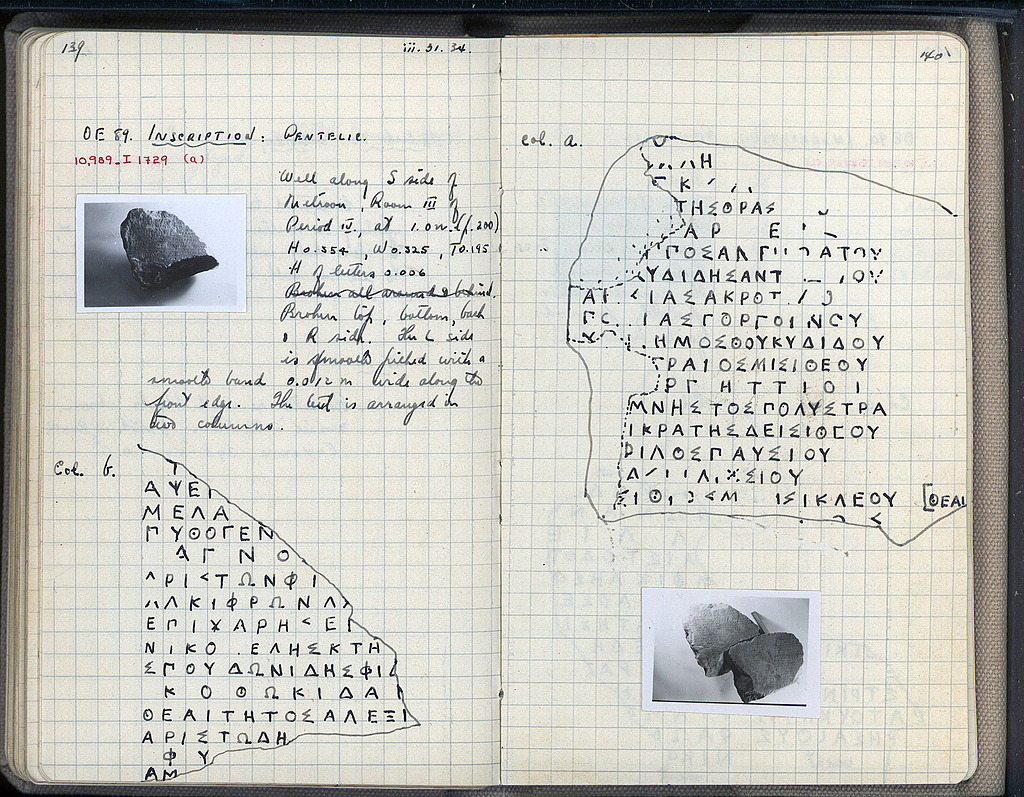 139
iii. 31. 34.
OE 89. INSCRIPTION: PENTELIC.
10,989_I 1729 (a)
Well along S side of
Metroon, Room III of
Period IV, at 1.0 m.
H 0.354, W 0.325, T 0.195
H of letters 0.006
Broken all around & behind.
Broken top, bottom, back
& R side. The L side
is smooth picked with a
smooth band 0.012 m wide along the
front edge. The text is arranged in
two columns.
Col. b.
Ι
ΑΨΕΙ
ΜΕΛΑ
ΠΥΘΟΓΕΝ
ΑΓΝΟ
ΑΡΙΣΤΩΝΦΙ
ΛΚΙΦΡΩΝΛ
ΕΠΙΧΑΡΗΣΕΙ
ΝΙΚΟ.ΕΛΗΣΚΤΗ
ΣΠΟΥΔΩΝΙΔΗΣΦΙΛ
ΚΟΘΩΚΙΔΑΙ
ΘΕΑΙΤΗΤΟΣΑΛΕΞΙ
ΑΡΙΣΤΩΔΗ
ΦΥ
ΑΜ
140
col. a.
ΛΗ
Κ
ΤΗΣΘΡΑΣ
ΑΡ Ε
ΠΟΣΑΝΓ ΑΤΟΥ
ΥΔΙΔΗΣΑΝΤ ΙΟΥ
ΙΑΣΑΚΡΟΤ
ΙΑΣΓΟΡΓΟΙΝΟΥ
ΗΜΟΣΘΟΥΚΥΔΙΔΟΥ
ΡΑΙΟΣΜΙΣΙΘΕΟΥ
ΡΓ ΗΤΤΙΟΙ
ΜΝΗΣΤΟΣΠΟΛΥΣΤΡΑ
ΙΚΡΑΤΗΣΔΕΙΣΙΘΕΟΥ
ΡΙΛΟΣΠΑΥΣΙΟΥ
ΣΙΟΥ
ΣΙΘ ΙΣΙΚΛΕΟΥ [ΘΕΑΙ